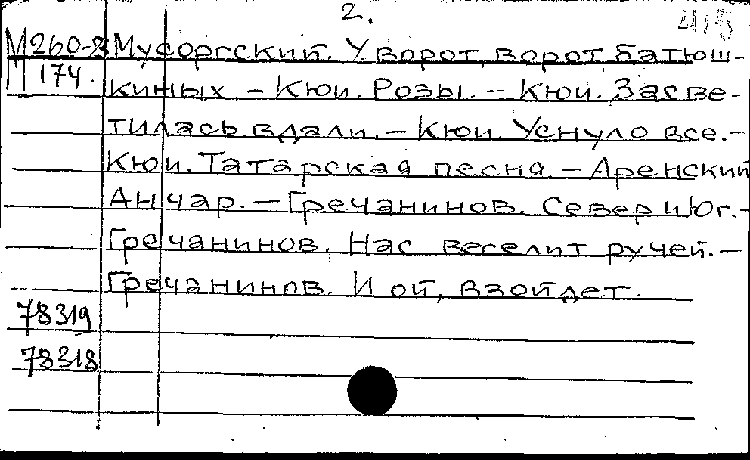 2.
М260-2 Мусоргский. У ворот, ворот батюш-
М 174. киных – Кюи. Розы. – Кюи. Засве-
тилась вдали. – Кюи. Уснуло все. –
Кюи. Татарская песня. – Аренский
Анчар. – Гречанинов. Север и Юг. –
Гречанинов. Нас веселит ручей. –
Гречанинов. И ой, взойдет.
78319
78318